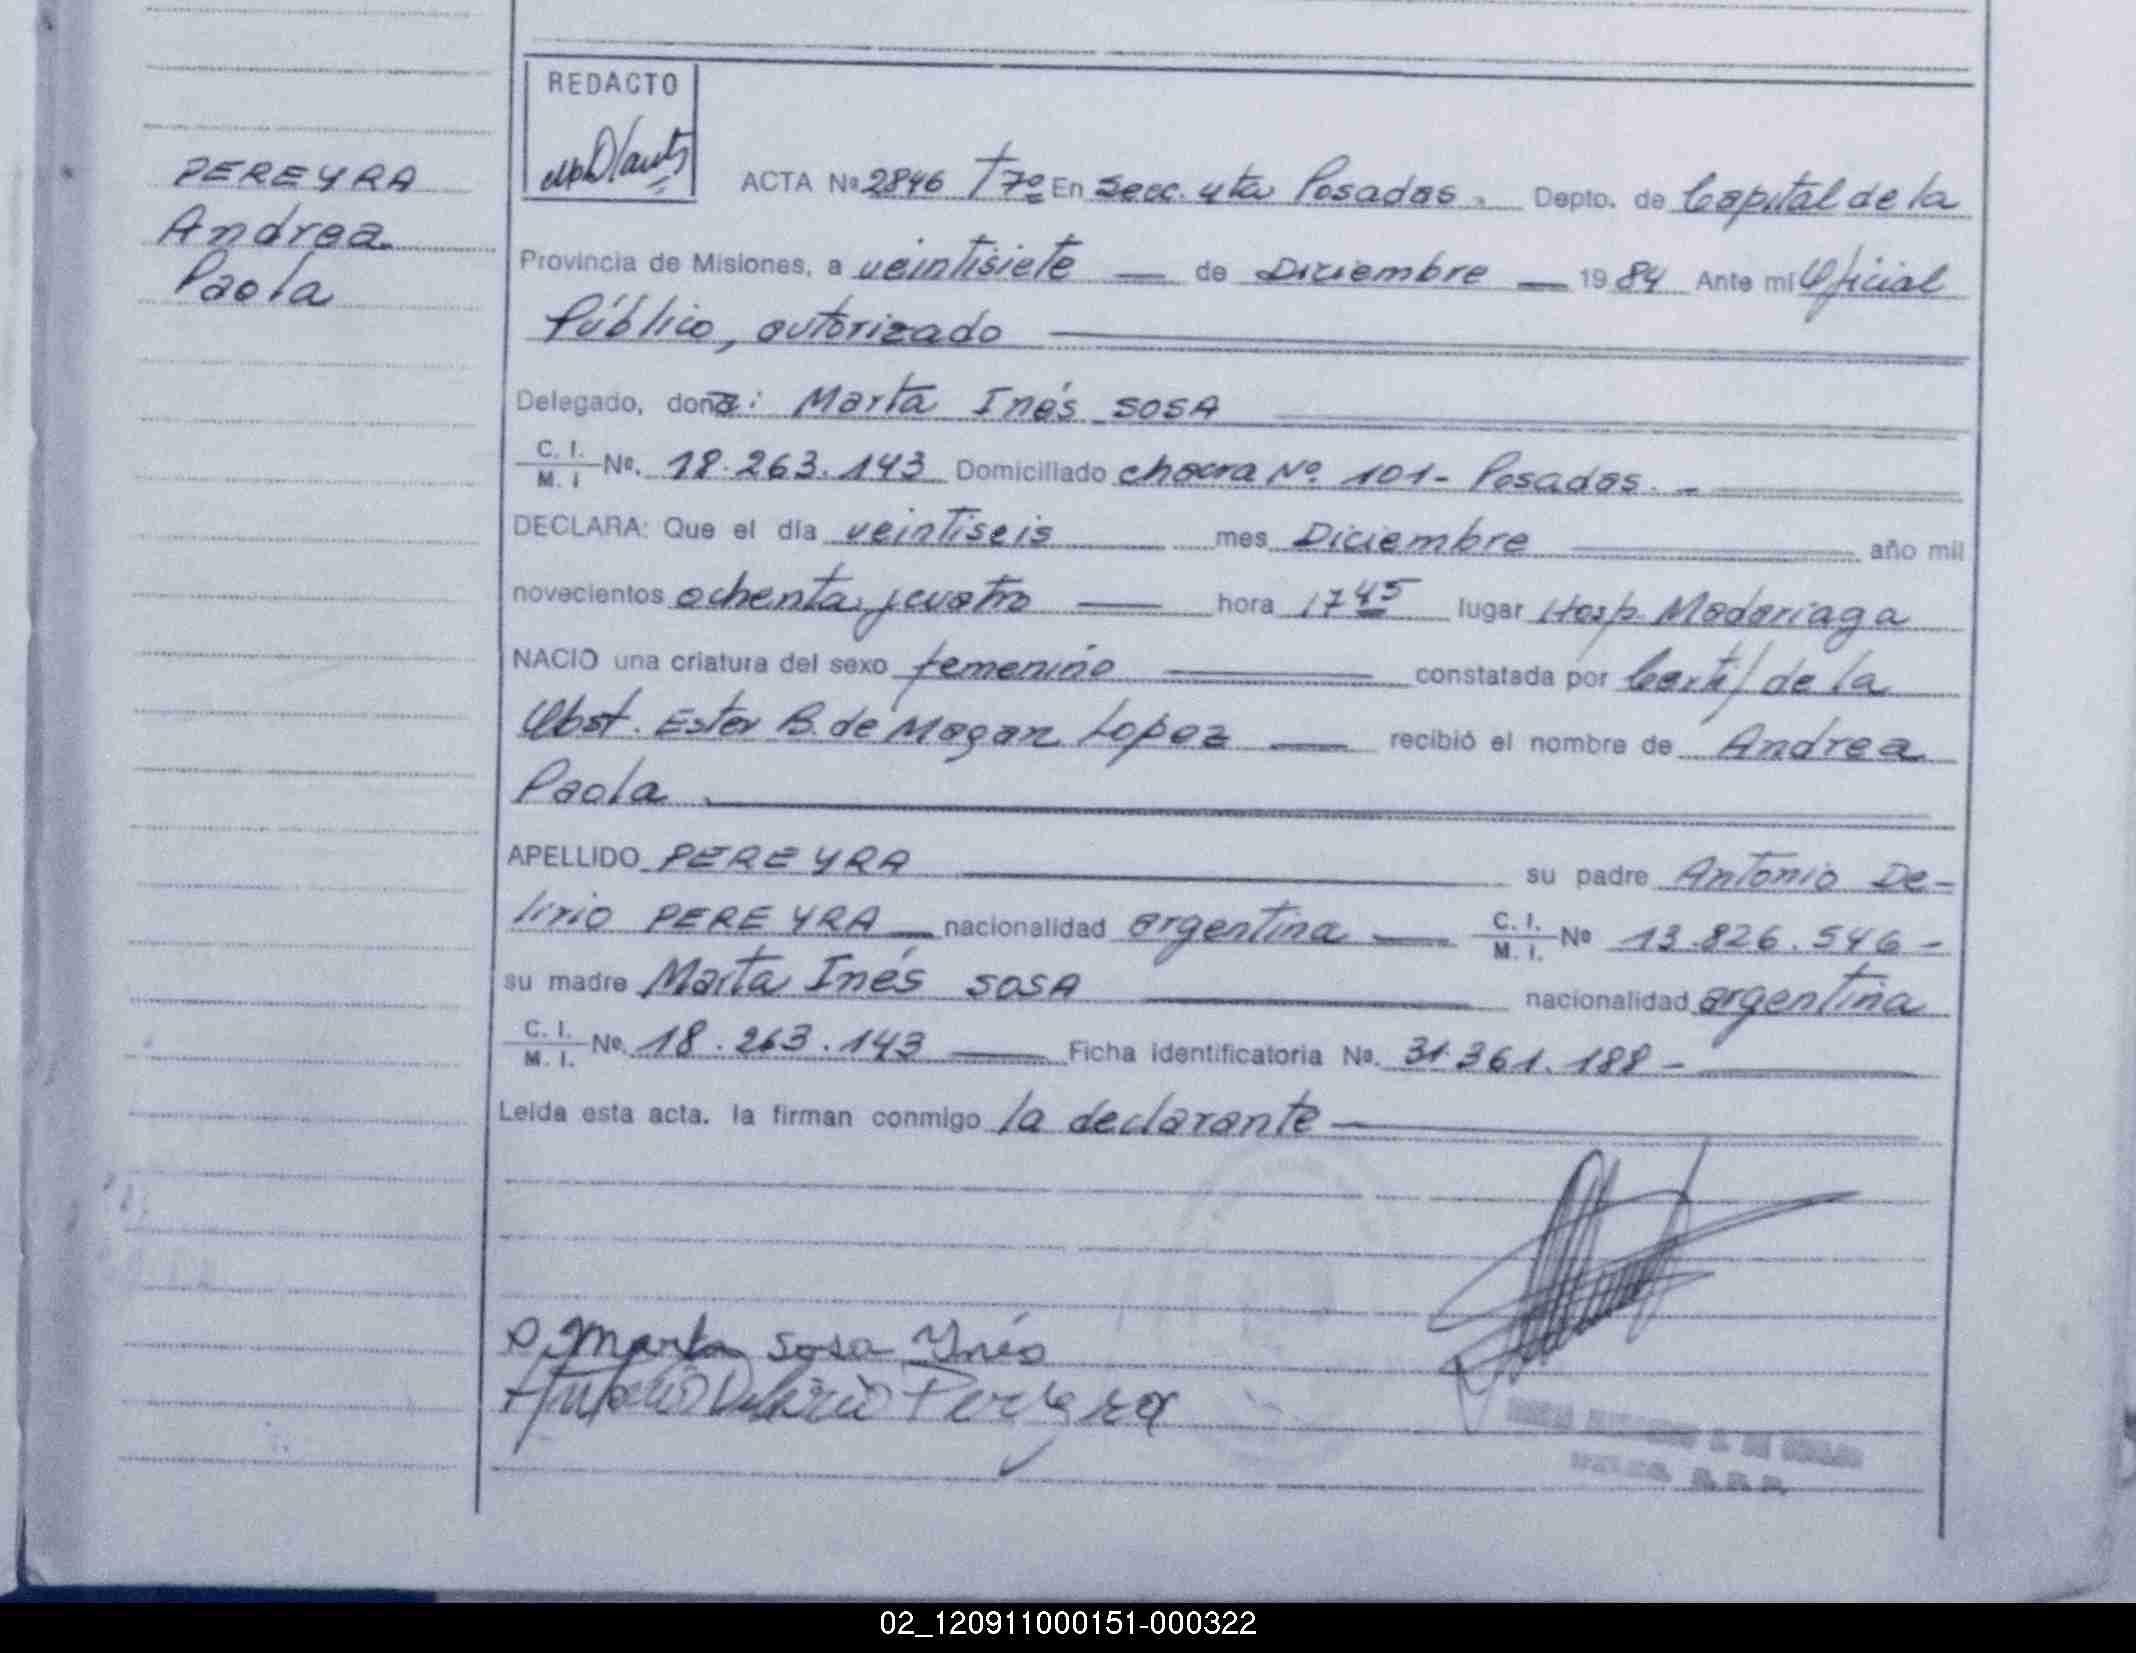 REDACTO
PEREYRA
Andrea
Paola
ACTA Nº 2846 T7º En Secc. 4ta Posadas. Depto. de Capital de la
Provincia de Misiones, a veintisiete — de Diciembre — 1984 Ante mí Oficial
Público, autorizado
Delegado, doña: Marta Inés SOSA
C. I. / M. I Nº. 18.263.143 Domiciliado chacra Nº 101 - Posadas. -
DECLARA: Que el día veintiseis mes Diciembre año mil
novecientos ochenta y cuatro — hora 17 45 lugar Hosp. Madariaga
NACIO una criatura del sexo femenino constatada por Certif de la
Obst. Ester B. de Magan Lopez — recibió el nombre de Andrea
Paola
APELLIDO PEREYRA su padre Antonio De-
lirio PEREYRA — nacionalidad argentina — C. I. / M. I. Nº 13.826.546 -
su madre Marta Inés SOSA nacionalidad argentina
C. I. / M. I. Nº. 18.263.143 — Ficha identificatoria Nº. 31.361.188 -
Leída esta acta. la firman conmigo la declarante
Marta Sosa Ynés
Antonio Delirio Pereyra
02_120911000151-000322